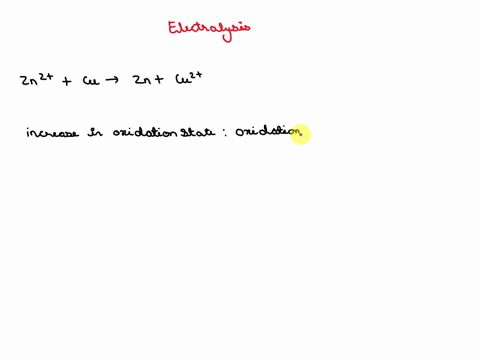 Electralysis
Zn²⁺ + Cu → Zn + Cu²⁺
increase in oxidation state : oxidation